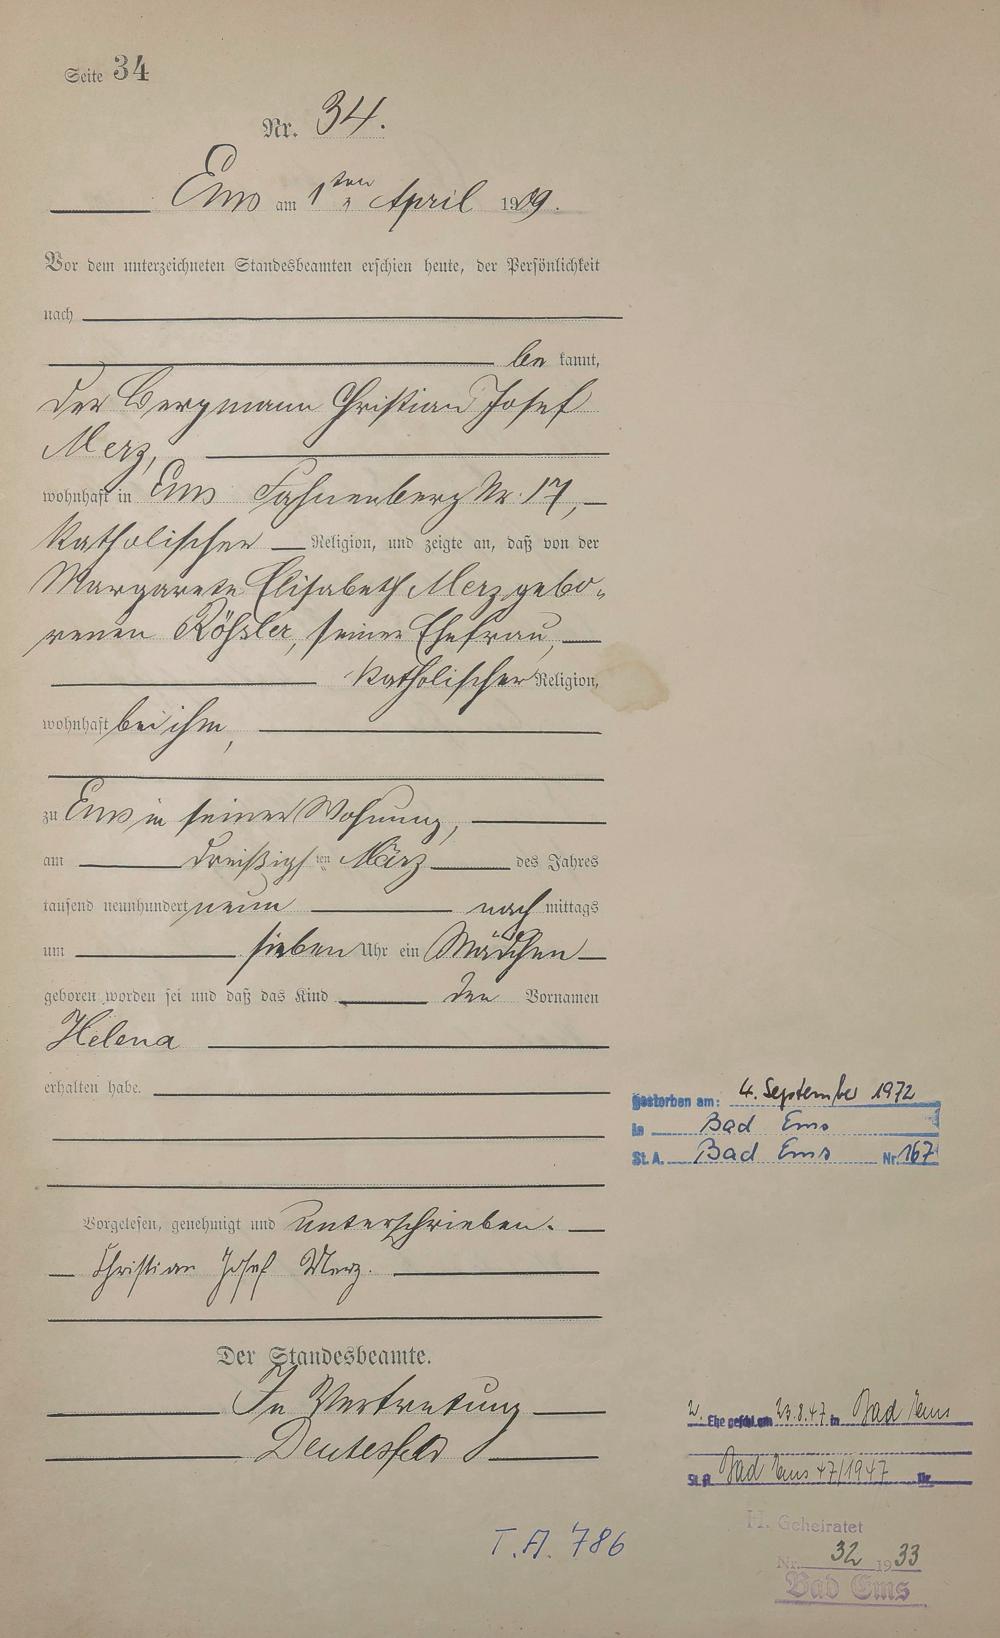 Seite 34
Nr. 34.
Ems am 1ten April 1909.
Vor dem unterzeichneten Standesbeamten erschien heute, der Persönlichkeit
nach
be kannt,
der Bergmann Christian Josef
Merz,
wohnhaft in Ems Fahnenberg Nr. 17,
katholischer Religion, und zeigte an, daß von der
Margarete Elisabeth Merz gebo-
renen Rößler, seiner Ehefrau,
katholischer Religion,
wohnhaft bei ihm,
zu Ems in seiner Wohnung,
am dreißigsten März des Jahres
tausend neunhundert neun nach mittags
um sieben Uhr ein Mädchen
geboren worden sei und daß das Kind den Vornamen
Helena
erhalten habe.
gestorben am: 4. September 1972
in Bad Ems
St. A. Bad Ems Nr. 167
Vorgelesen, genehmigt und unterschrieben.
Christian Josef Merz.
Der Standesbeamte.
In Vertretung
2. Ehe geschl. am 23.8.47 in Bad Ems
St. A. Bad Ems 47/1947 Nr.
T.A. 786
H. Geheiratet
Nr. 32 1933
Bad Ems